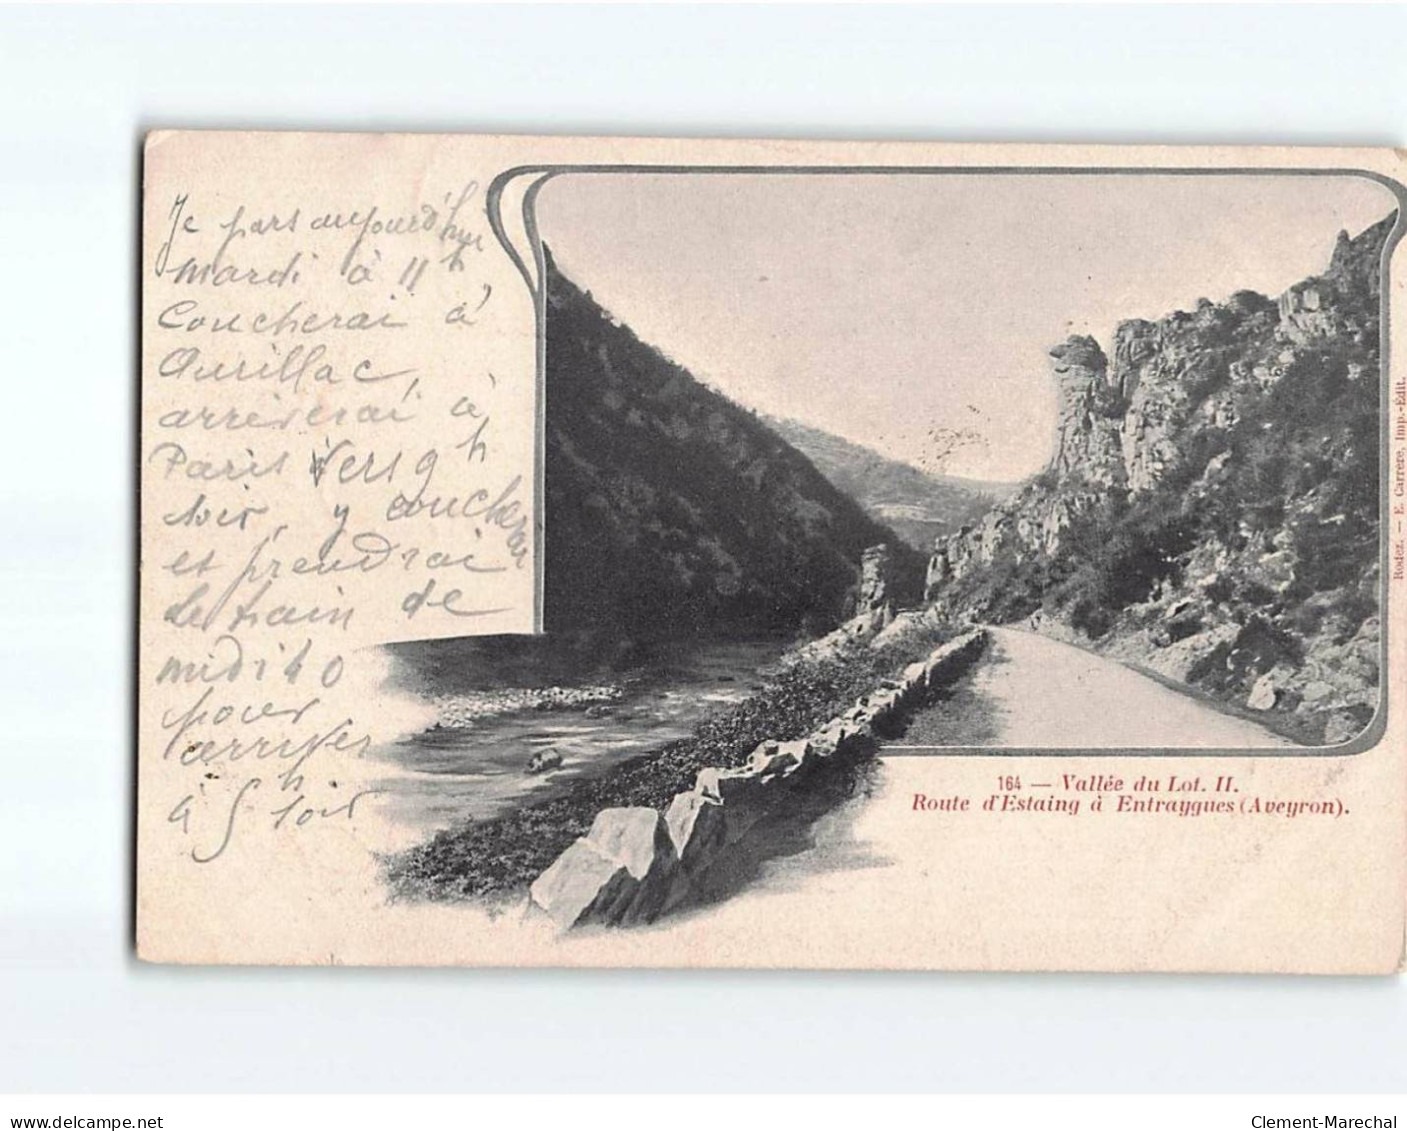 Je pars aujourd'hui
mardi à 11h
Coucherai à
Aurillac,
arriverai à
Paris vers 9h
soir, y coucherai
et prendrai
le train de
midi 40
pour
arriver
à 5h soir
164 — Vallée du Lot. II.
Route d'Estaing à Entraygues (Aveyron).
Rodez. — E. Carrère, Imp.-Édit.
www.delcampe.net
Clement-Marechal